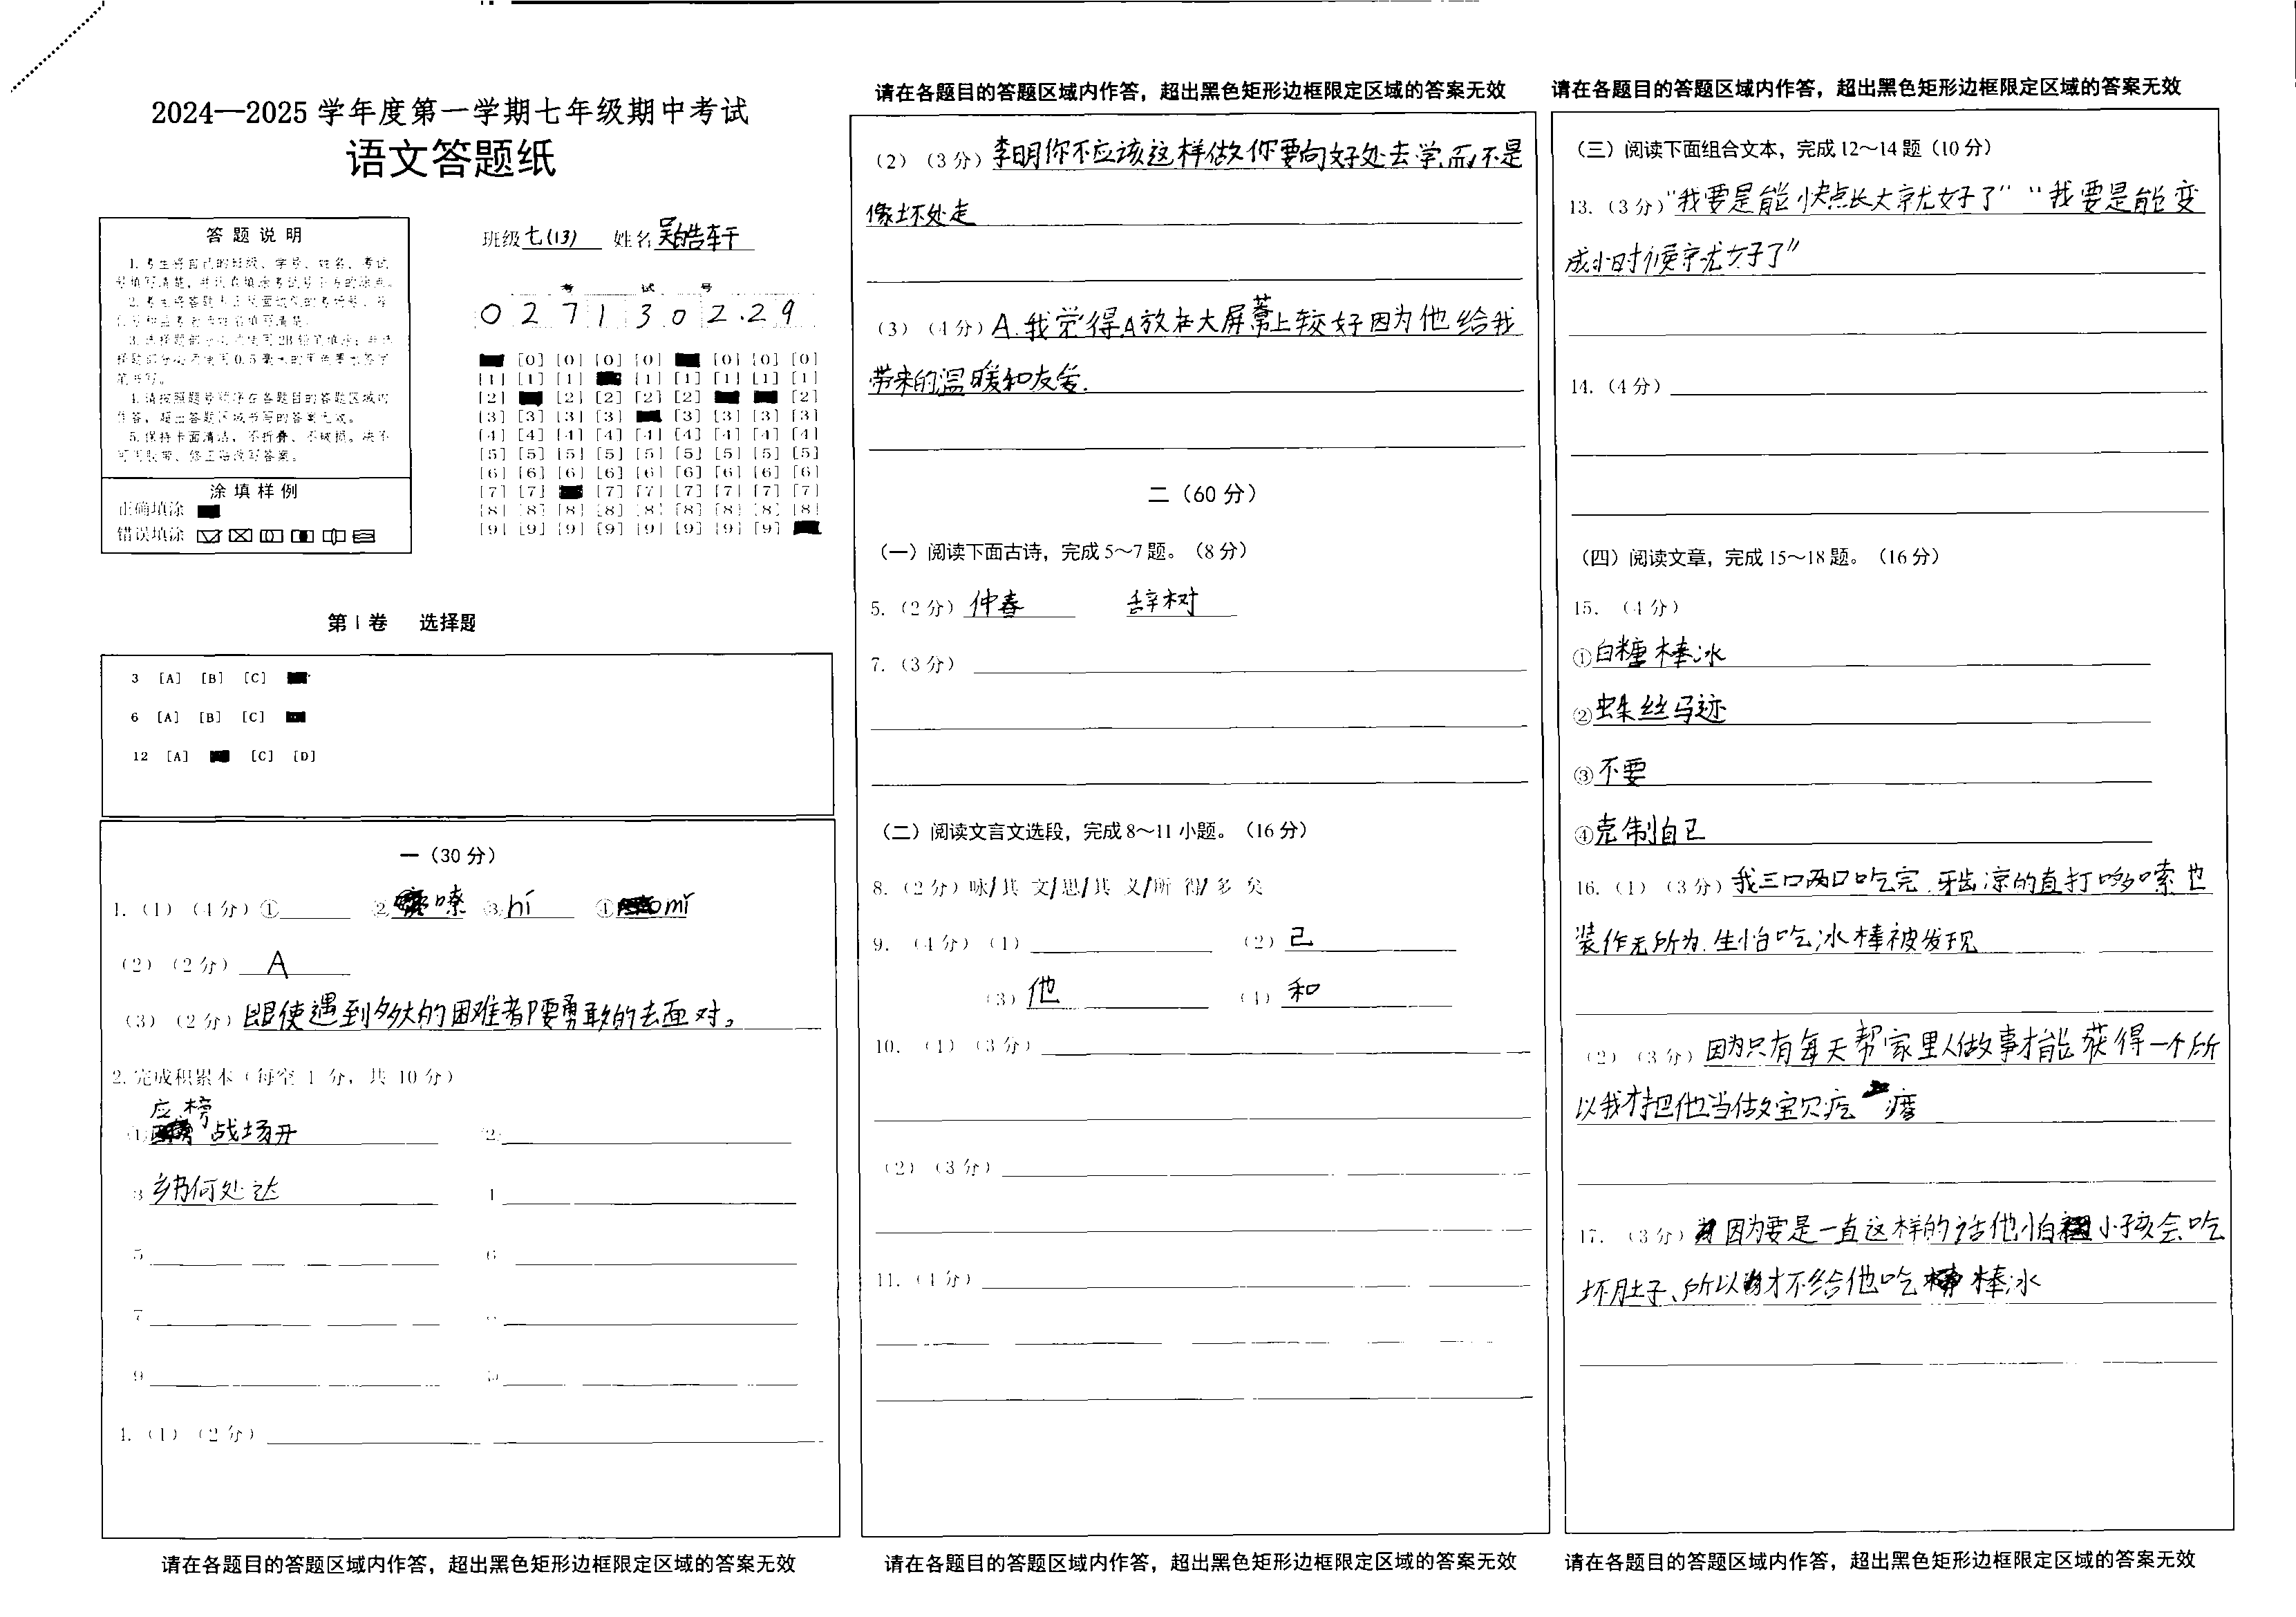 2024—2025 学年度第一学期七年级期中考试
语文答题纸
答 题 说 明
1.考生将自己的班级、学号、姓名、考试
3.选择题部分必须使用2B铅笔填涂；非选
择题部分必须使用0.5毫米的黑色墨水签字
笔书写。
4.请按照题号顺序在各题目的答题区域内
作答，超出答题区域书写的答案无效。
5.保持卡面清洁，不折叠、不破损。
涂 填 样 例
正确填涂
错误填涂
班级 七(13) 姓名 吴皓轩
考 试 号
0 2 7 1 3 0 2.2 9
[0] [0] [0] [0] [0] [0] [0]
[1] [1] [1] [1] [1] [1] [1] [1]
[2] [2] [2] [2] [2] [2]
[3] [3] [3] [3] [3] [3] [3] [3]
[4] [4] [4] [4] [4] [4] [4] [4] [4]
[5] [5] [5] [5] [5] [5] [5] [5] [5]
[6] [6] [6] [6] [6] [6] [6] [6] [6]
[7] [7] [7] [7] [7] [7] [7] [7]
[8] [8] [8] [8] [8] [8] [8] [8] [8]
[9] [9] [9] [9] [9] [9] [9] [9]
第 I 卷 选择题
3 [A] [B] [C]
6 [A] [B] [C]
12 [A] [C] [D]
一（30 分）
1.（1）（4分）① ② 嗦 ③ hí ④ mí
（2）（2分） A
（3）（2分） 即使遇到多大的困难都要勇敢的去面对。
2.完成积累本（每空 1 分，共 10 分）
应 榜
(1) 战场开 2
3 乡书何处达 4
5 6
7 8
9 10
4.（1）（2分）
请在各题目的答题区域内作答，超出黑色矩形边框限定区域的答案无效
请在各题目的答题区域内作答，超出黑色矩形边框限定区域的答案无效
（2）（3分） 李明你不应该这样做你要向好处去学,而不是
像坏处走
（3）（4分） A.我觉得A放在大屏幕上较好因为他给我
带来的温暖和友爱.
二（60 分）
（一）阅读下面古诗，完成 5～7 题。（8 分）
5.（2分） 仲春 辞树
7.（3分）
（二）阅读文言文选段，完成 8～11 小题。（16 分）
8.（2分）咏/其 文/思/其 义/所 得/ 多 矣
9.（4分）（1） （2） 己
（3） 他 （4） 和
10.（1）（3分）
（2）（3分）
11.（4分）
请在各题目的答题区域内作答，超出黑色矩形边框限定区域的答案无效
请在各题目的答题区域内作答，超出黑色矩形边框限定区域的答案无效
（三）阅读下面组合文本，完成 12～14 题（10 分）
13.（3分） “我要是能快点长大就好了” “我要是能变
成小时候就好了”
14.（4分）
（四）阅读文章，完成 15～18 题。（16 分）
15.（4分）
① 白糖棒冰
② 蛛丝马迹
③ 不要
④ 克制自己
16.（1）（3分） 我三口两口吃完,牙齿凉的直打哆嗦也
装作无所为.生怕吃冰棒被发现
（2）（3分） 因为只有每天帮家里人做事才能获得一个所
以我才把他当做宝贝疙 瘩
17.（3分） 因为要是一直这样的话他怕 小孩会吃
坏肚子、所以 才不给他吃 棒冰
请在各题目的答题区域内作答，超出黑色矩形边框限定区域的答案无效